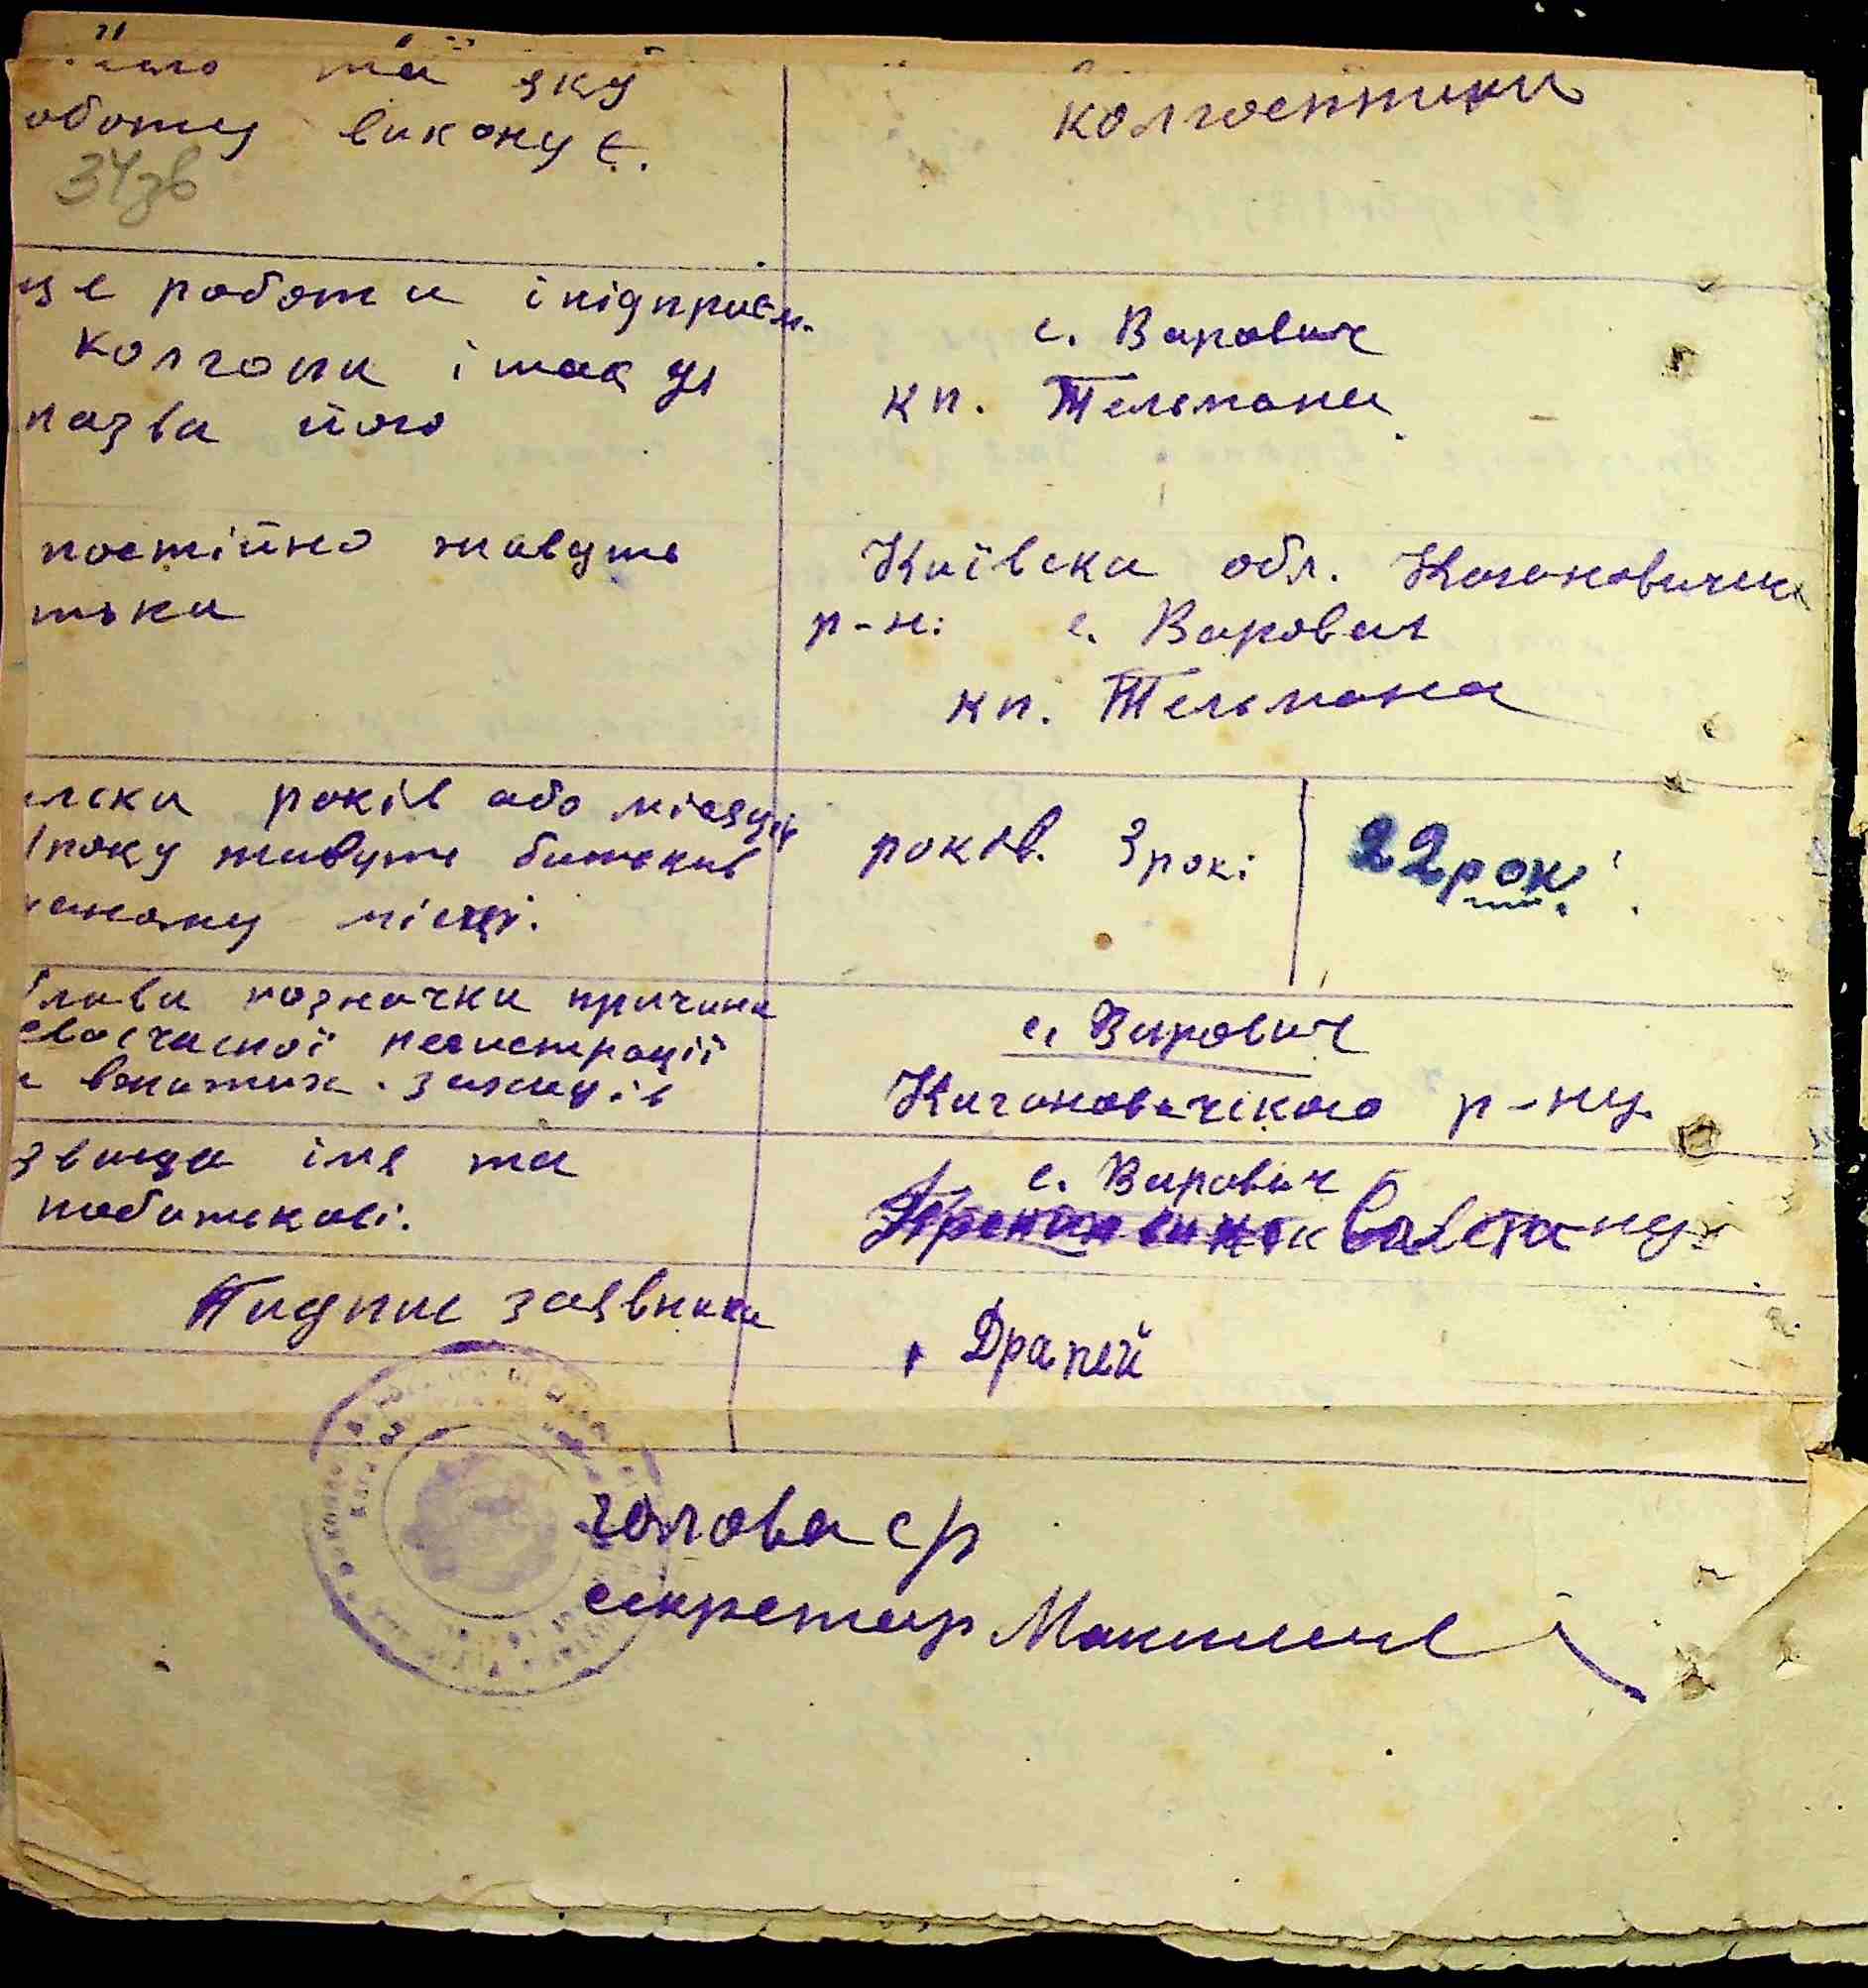 та яку
оботу виконує.
колгоспники
34зв
це роботи і підприєм.
колгопи і так ді
назва його
с. Варович
кп. Тельмана
постійно живуть
тьки
Київска обл. Кагановички
р-н: с. Варович
кп. Тельмана
лєки років або місяців
року живуть батьків
даному місці.
років. 3 рокі
22 рок
позначки причина
евосчасної реєистрації
вжитих. заходів
с. Варович
Кагановичікого р-ну
звища імя та
побатькові.
с. Варович
Валєтану
Пидпис заявника
Драпей
голова ср
секретар